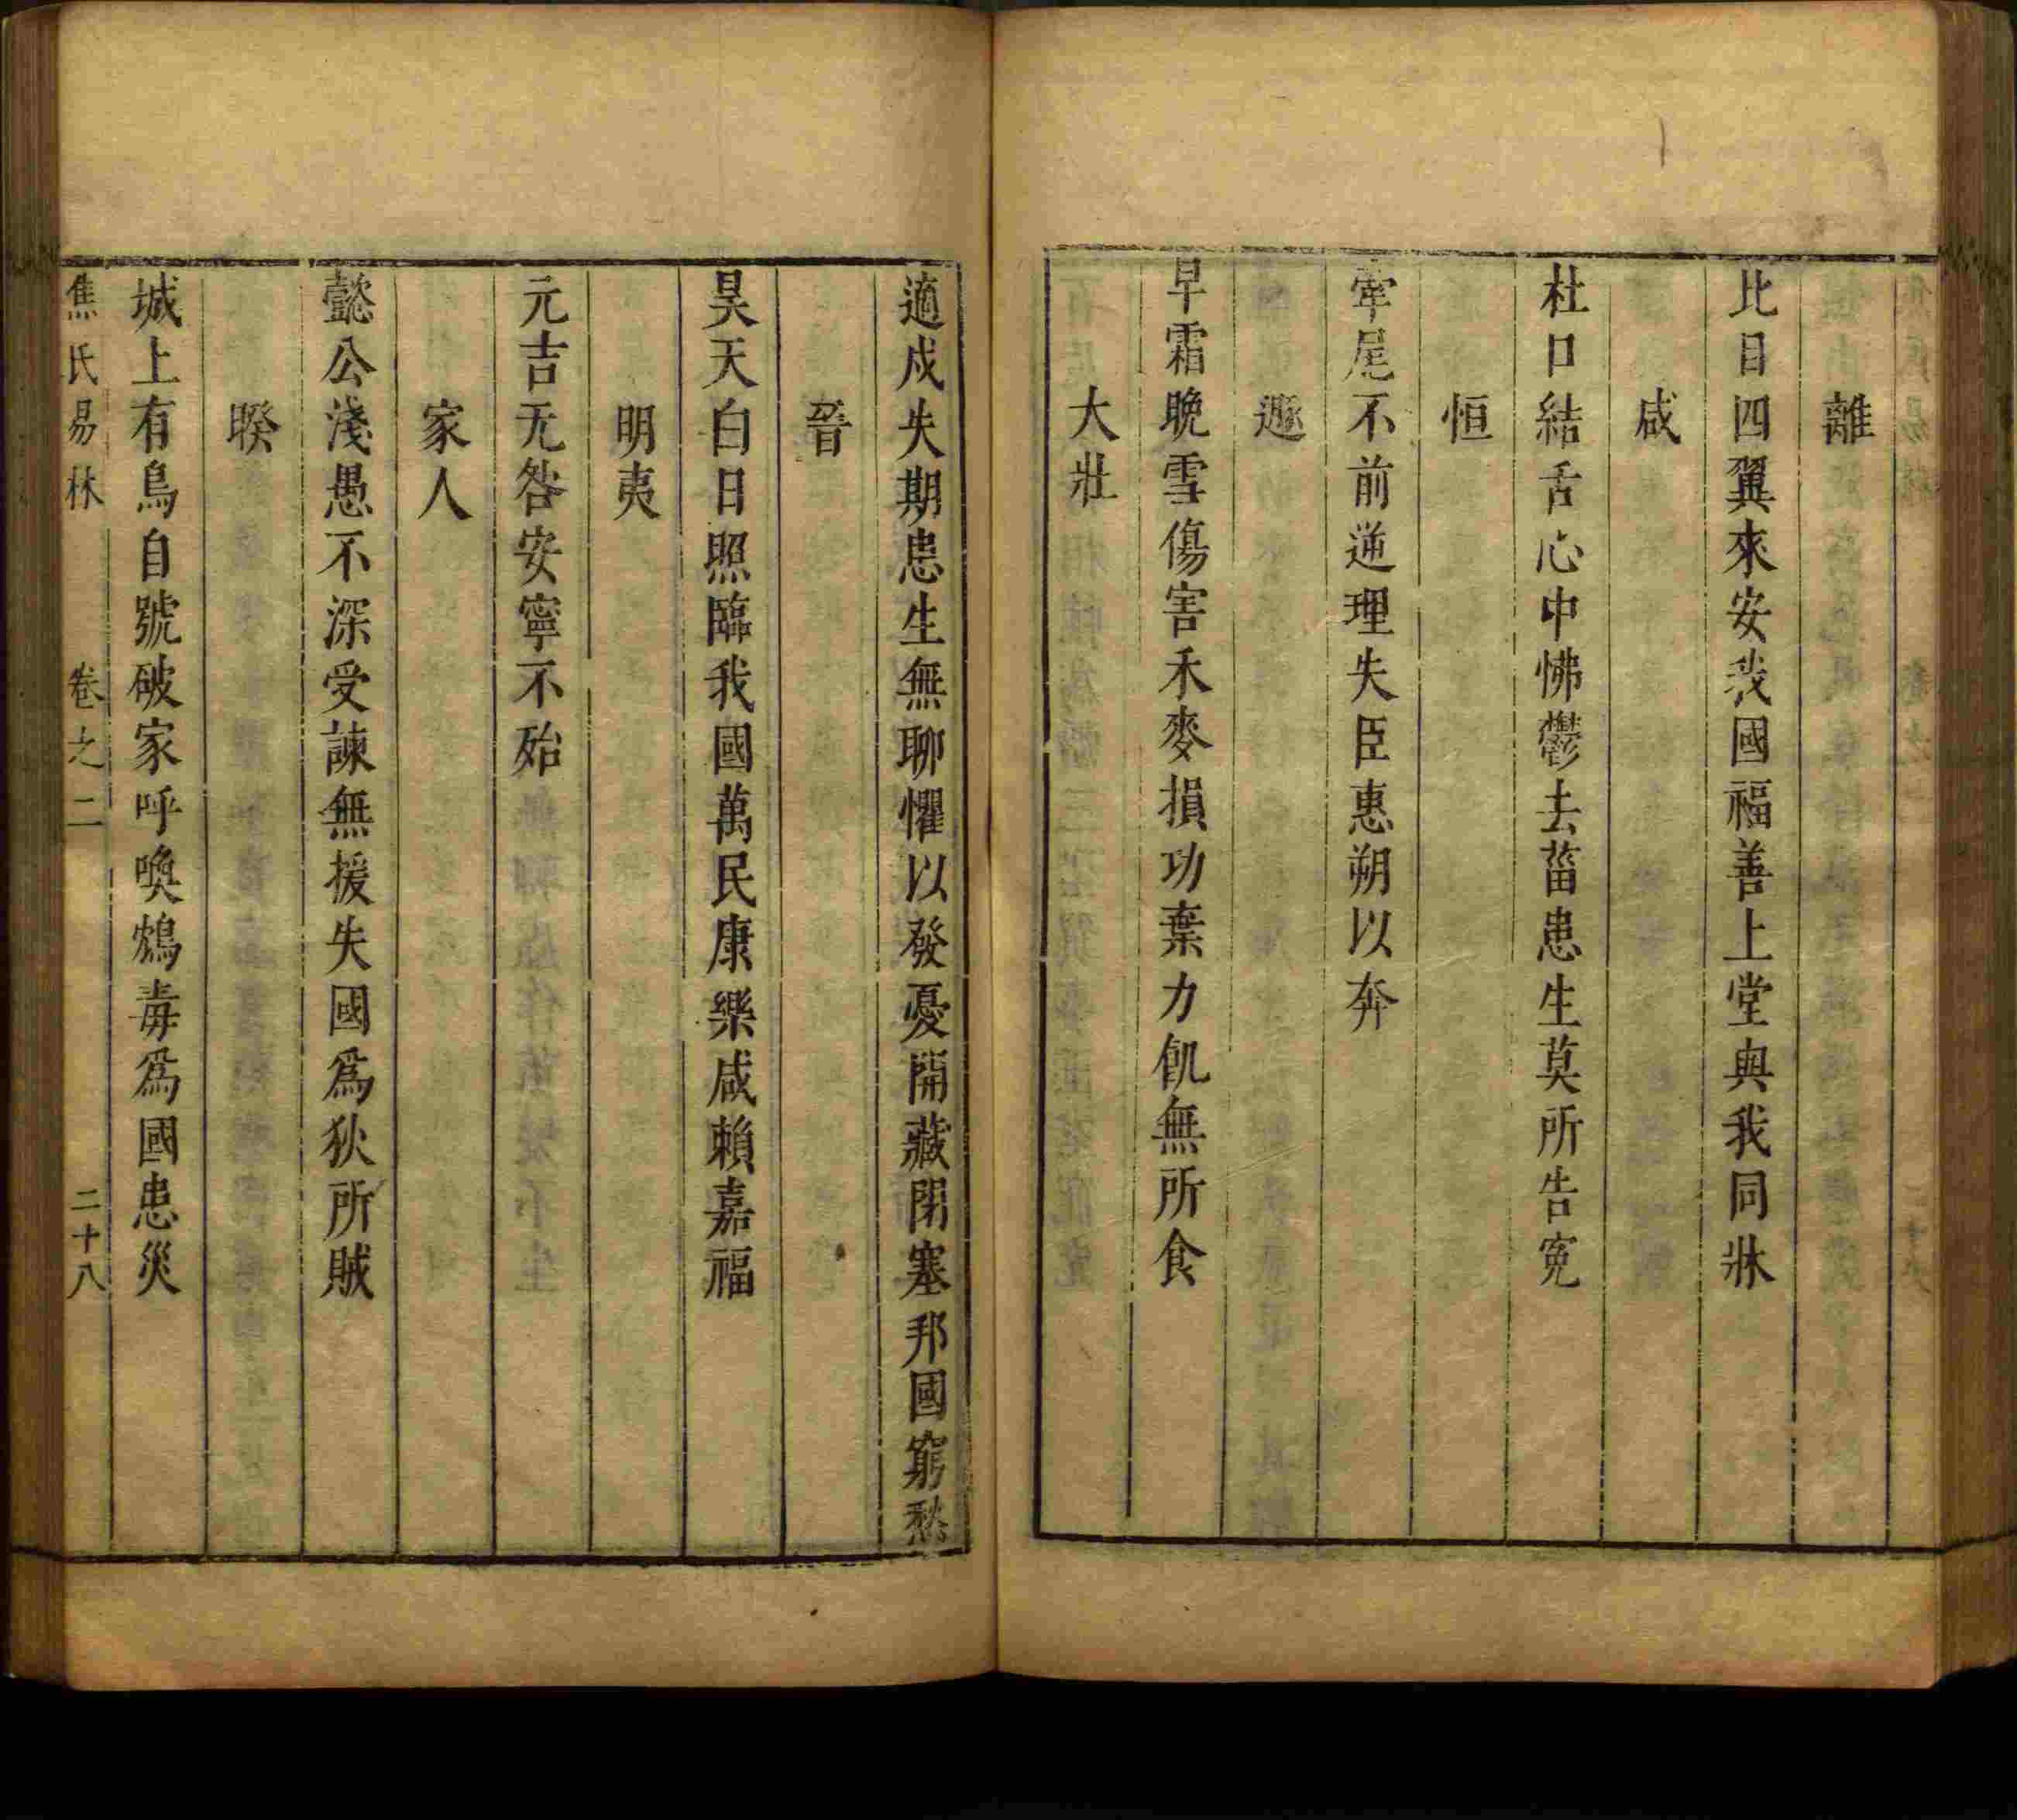 離
比目四翼來安我國福善上堂與我同牀
咸
杜口結舌心中怫鬱去菑患生莫所告寃
恒
牽尾不前逆理失臣惠朔以奔
遯
早霜晚雪傷害禾麥損功棄力飢無所食
大壯
適戍失期患生無聊懼以發憂開藏閉塞邦國窮愁
晉
昊天白日照臨我國萬民康樂咸賴嘉福
明夷
元吉无咎安寧不殆
家人
懿公淺愚不深受諫無援失國爲狄所賊
睽
城上有烏自號破家呼喚鴆毒爲國患災
焦氏易林 卷之二 二十八